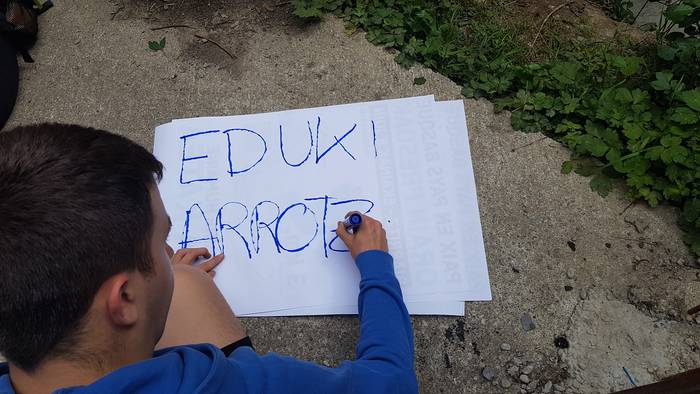 EDUKI
ARROTZ